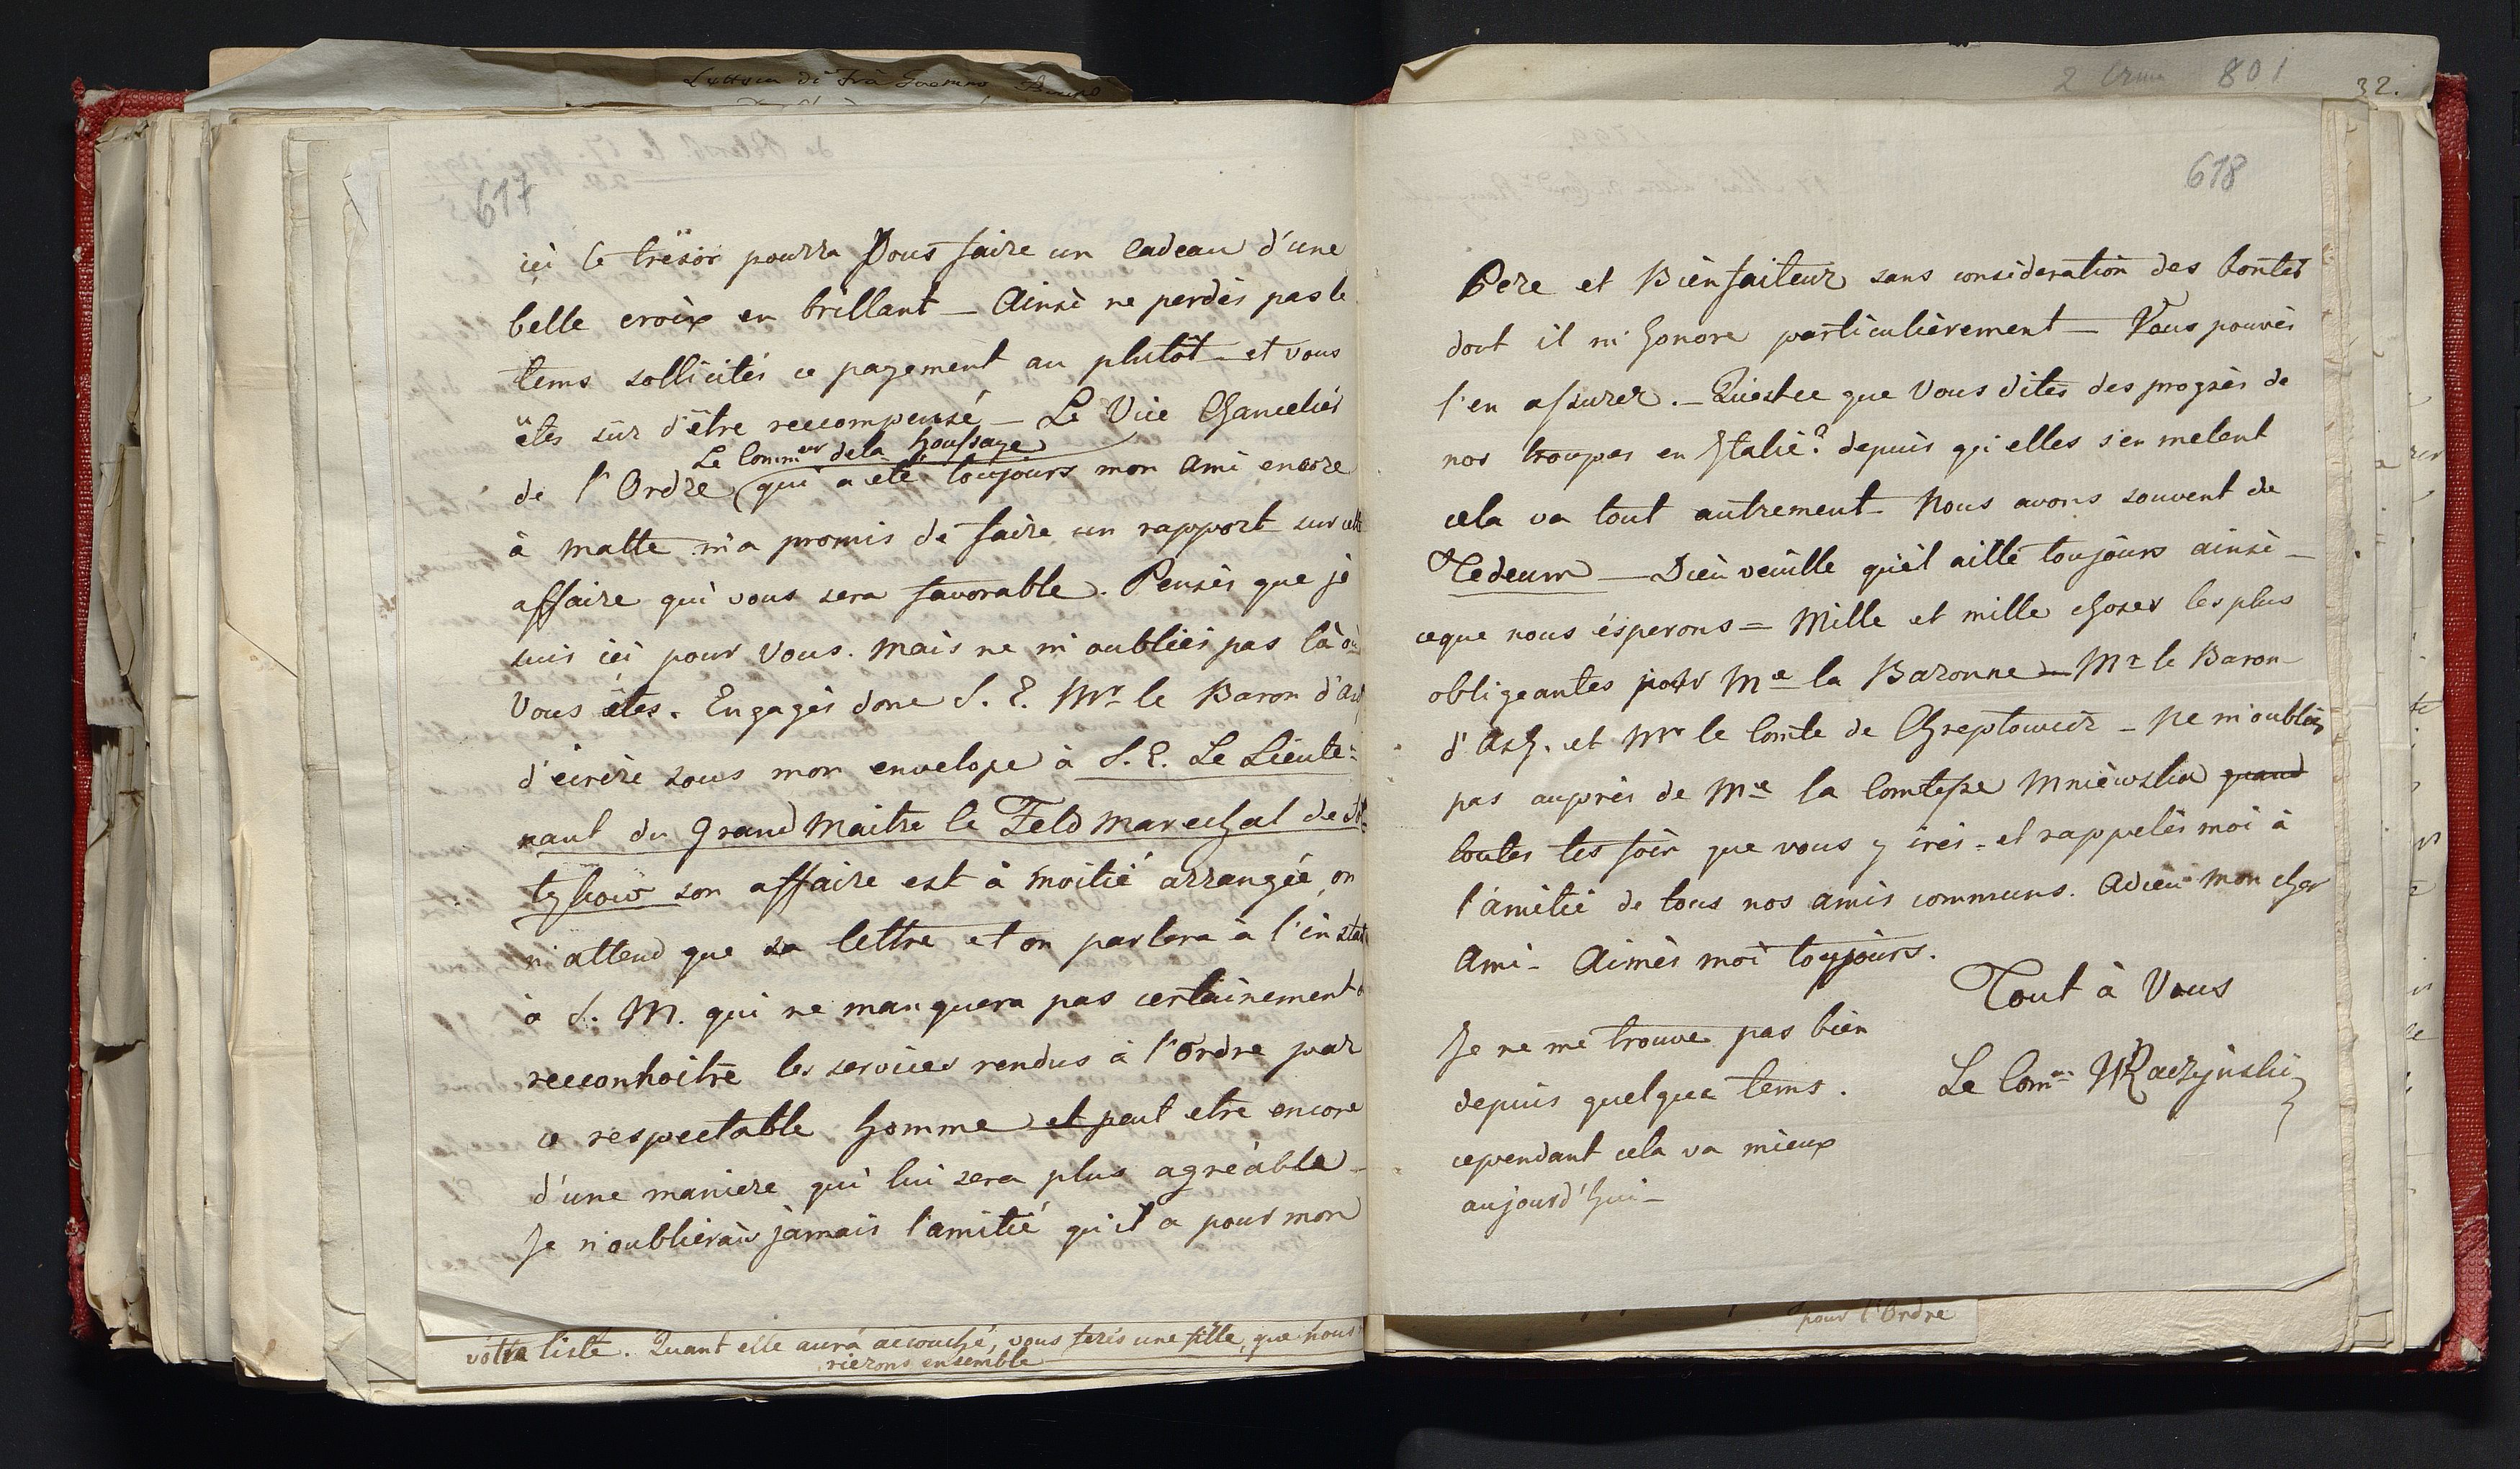 617
ici le trèsor pourra Vous faire un Cadeau d'une
belle croix en brillant — Ainsi ne perdès pas le
tems sollicités ce payement au plutôt — et vous
êtes sûr d'être reccompensé — Le Vice Chancelier
Le Commeur dela Houssaye
de l'Ordre (qui a été toujours mon Ami encore
à Malte m'a promis de faire un rapport sur cette
affaire qui vous sera favorable. Pensès que je
suis ici pour Vous. Mais ne m'oubliés pas là où
Vous êtes. Engagès donc S. E. Mr le Baron d'Asch
d'ecrire sous mon envelope à S. E. Le Lieute=
nant du Grand Maitre le Feld Marechal de Sol=
tykow son affaire est à moitié arrangée, on
n'attend que sa lettre et on parlera à l'instant
à S. M. qui ne manquera pas certainement
recconnoitre les services rendus à l'Ordre par
ce respectable homme et peut etre encore
d'une maniere qui lui sera plus agréable —
Je n'oublierais jamais l'amitié qu'il a pour mon
votre liste. Quant elle aura accouché, vous ferés une fille, que nous
rierons ensemble
2 801
32.
618
Pere et Bienfaiteur sans consideration des bontés
dont il m'honore particulièrement — Vous pouvès
l'en assurer. — Qu'estce que Vous dites des progrès de
nos troupes en Italie? depuis qu'elles s'en melent
cela va tout autrement — Nous avons souvent du
Tedeum — Dieu veuille qu'il aille toujours ainsi —
ceque nous ésperons = Mille et mille choses les plus
obligeantes pour Me la Baronne — Mr le Baron
d'Asch. et Mr le Comte de Chreptowicz — Ne m'oubliés
pas auprès de Me la Comtesse Mniewska quand
toutes les fois que vous y irés — et rappelès moi à
l'amitié de tous nos amis communs. Adieu mon cher
Ami — Aimès moi toujours.
Tout à Vous
Je ne me trouve pas bien
Le Comr MRaczynski
depuis quelque tems.
cependant cela va mieux
aujourd'hui —
pour l'Ordre